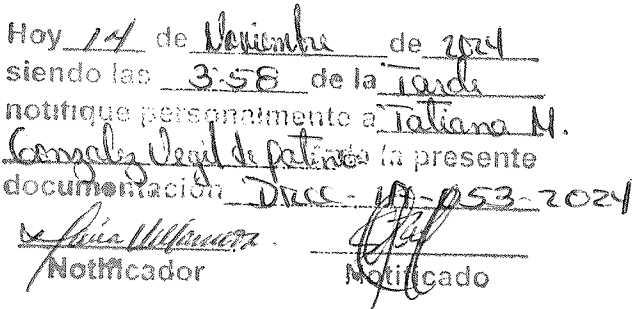 Hoy 14 de Noviembre de 2024
siendo las 3:58 de la Tarde
notifique personalmente a Tatiana M.
Gonzalez Vegil de Patiño la presente
documentación DRCC-IA-053-2024
Notificador Notificado